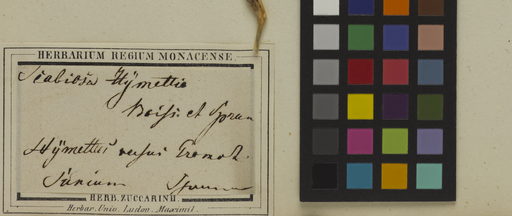 HERBARIUM REGIUM MONACENSE.
Scabiosa Hÿmettia
Boiss. et Sprun
Hÿmettus versus
HERB. ZUCCARINII.
Herbar. Univ. Ludov. Maximil.